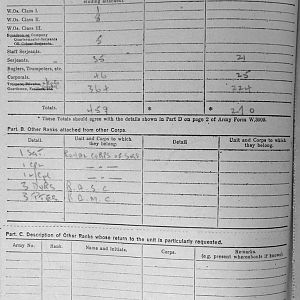 W.Os. Class I. 1
W.Os. Class II. 8
W.Os. Class III.
Staff Serjeants.
Serjeants. 35 21
Buglers, Trumpeters, etc.
Corporals. 46 25
364 224
Totals. 459 * * 270
* These Totals should agree with the details shown in Part D on page 2 of Army Form W.3009.
Part B. Other Ranks attached from other Corps.
Detail Unit and Corps to which they belong. Detail Unit and Corps to which they belong.
1 Sgt ROYAL CORPS OF SIGS
1 Cpl — " —
— " —
3 DVRS R.A.S.C.
3 PTES R.A.M.C.
Part C. Description of Other Ranks whose return to the unit is particularly requested.
Army No. Rank. Name and Initials. Corps. Remarks.
(e.g. present whereabouts if known)